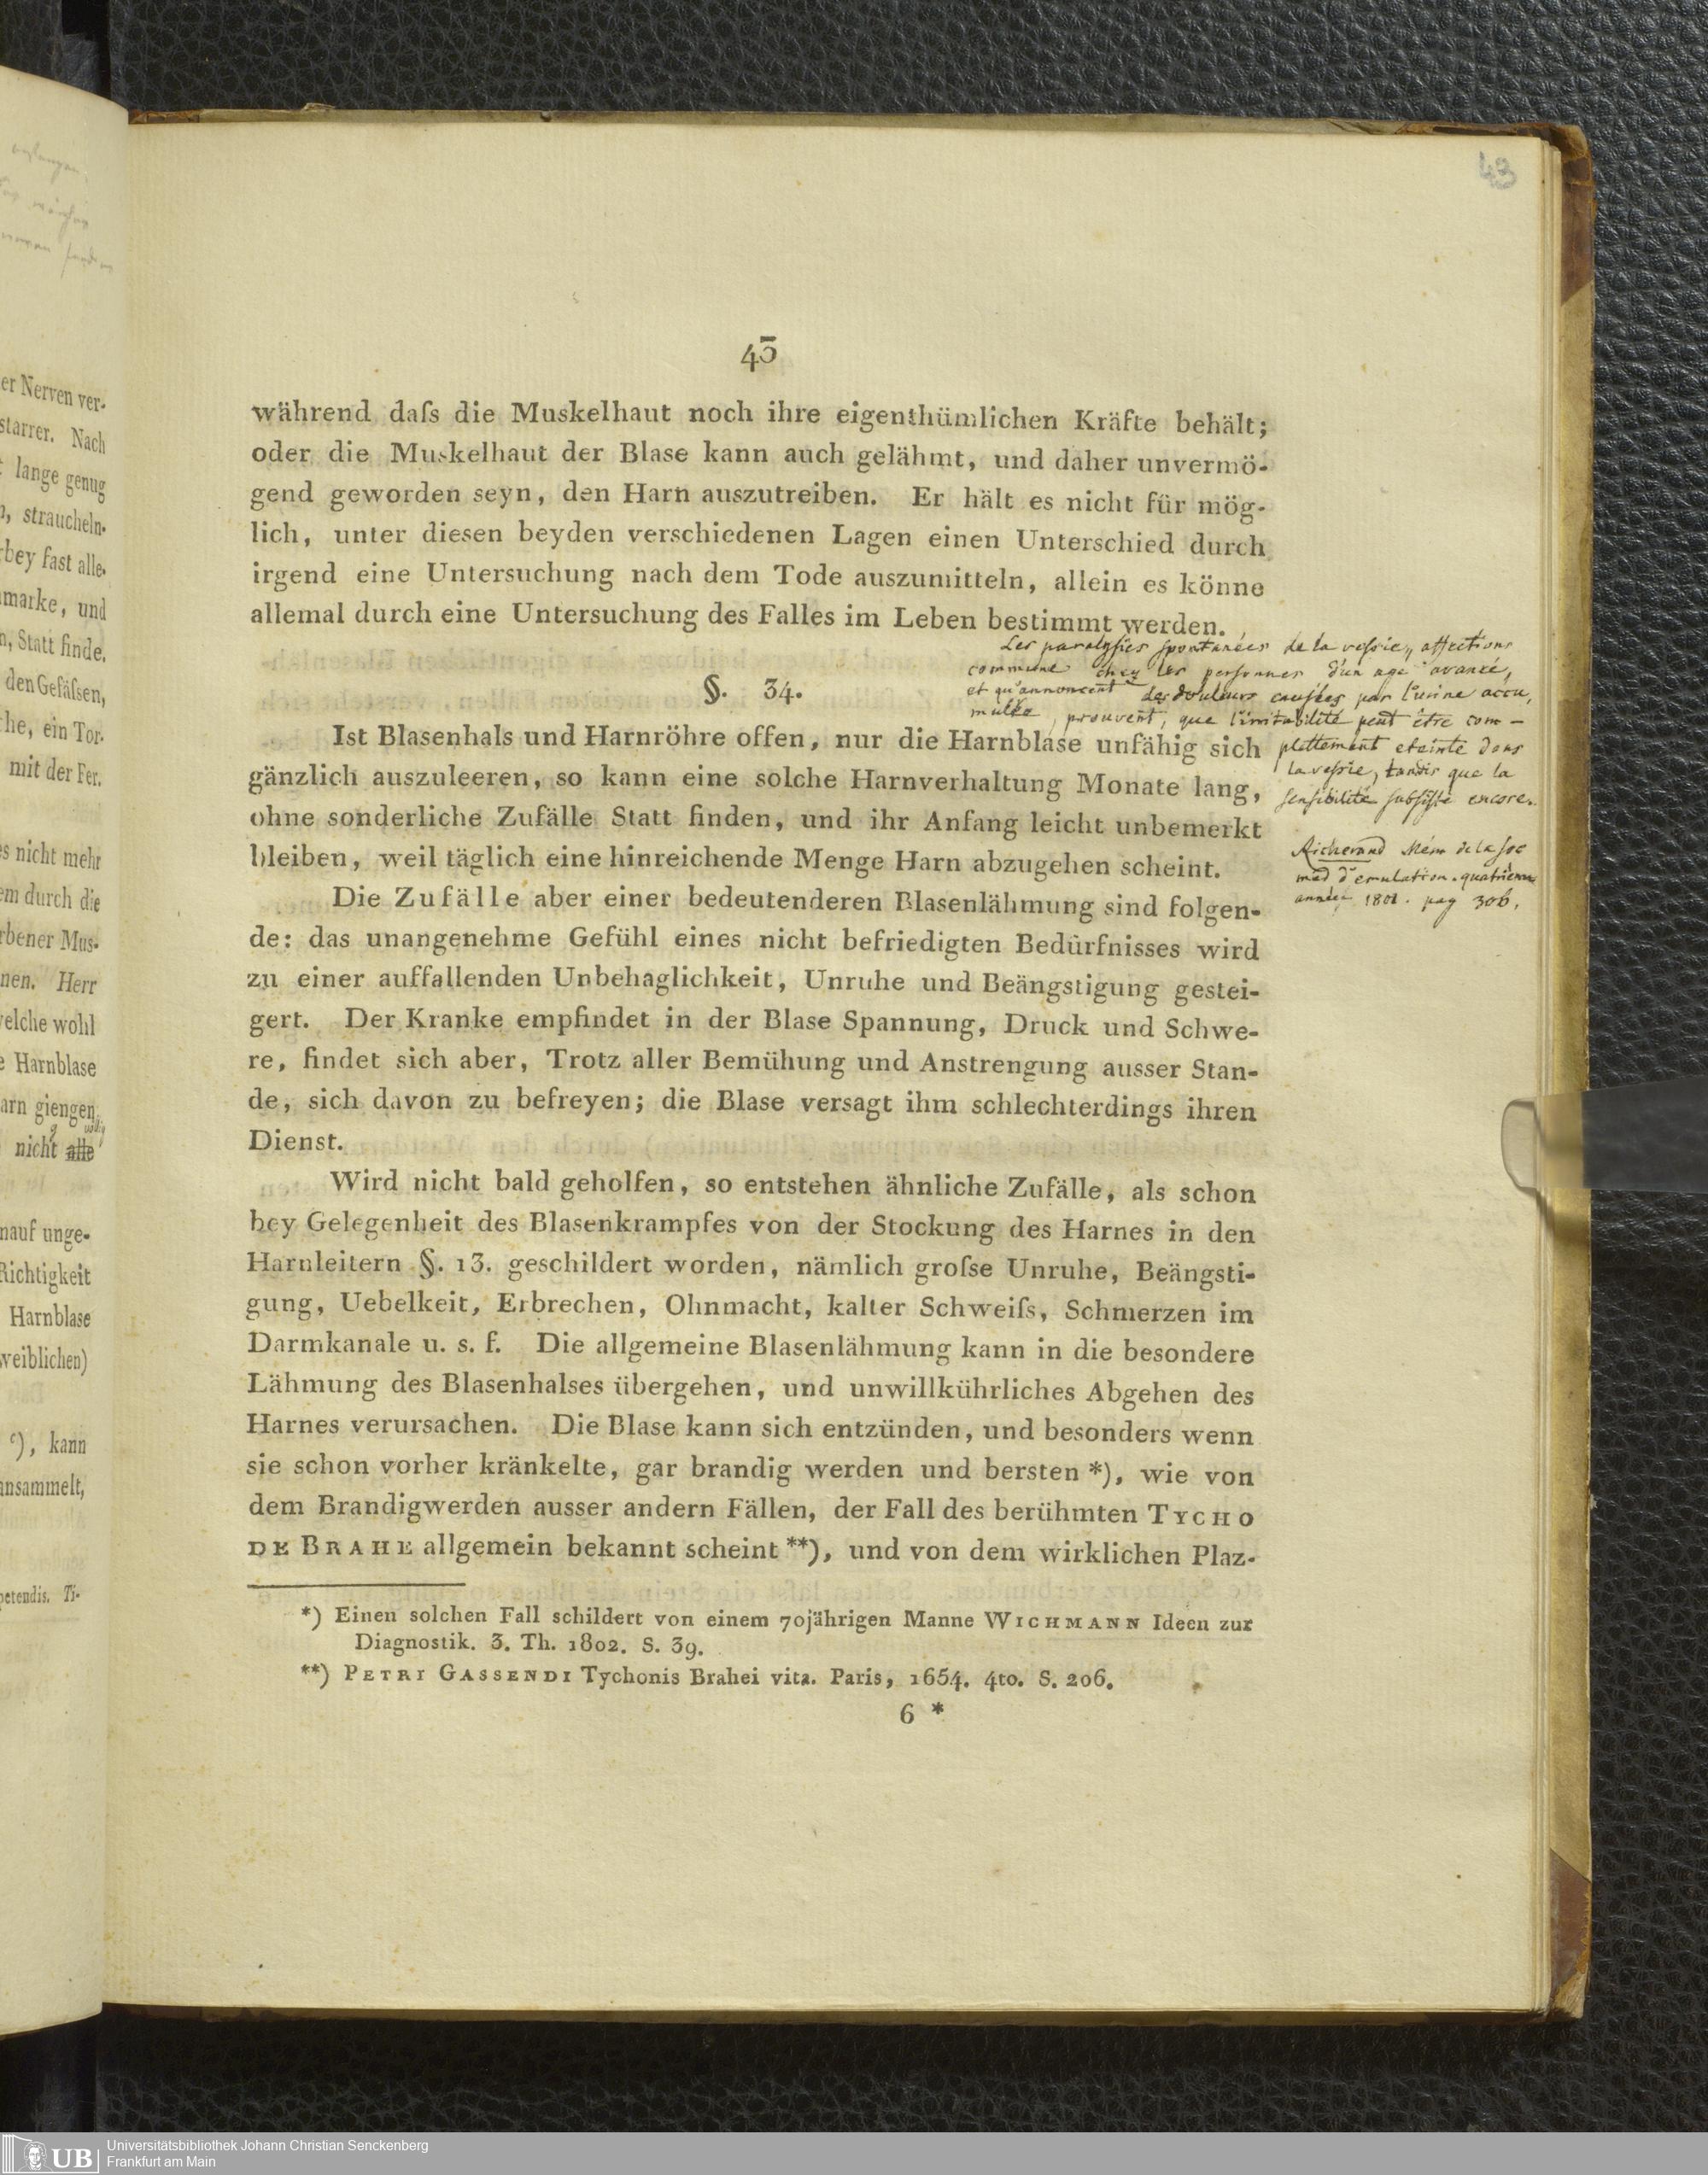 43
43
während daſs die Muskelhaut noch ihre eigenthümlichen Kräfte behält;
oder die Muskelhaut der Blase kann auch gelähmt, und daher unvermö-
gend geworden seyn, den Harn auszutreiben. Er hält es nicht für mög-
lich, unter diesen beyden verschiedenen Lagen einen Unterschied durch
irgend eine Untersuchung nach dem Tode auszumitteln, allein es könne
allemal durch eine Untersuchung des Falles im Leben bestimmt werden.
Les paralysies spontanées de la veſsie, affections
commune chez les personnes d'un age avancé,
et qu'annoncent des douleurs causées par l'urine accu,
mulée, prouvent, que l'irritabilité peut être com-
plettement eteinte dans
la veſsie, tandis que la
sensibilité subsiste encore.
Richerand Mém de la soc
med d'emulation. quatrieme
année 1801. pag 306.
§. 34.
Ist Blasenhals und Harnröhre offen, nur die Harnblase unfähig sich
gänzlich auszuleeren, so kann eine solche Harnverhaltung Monate lang,
ohne sonderliche Zufälle Statt finden, und ihr Anfang leicht unbemerkt
bleiben, weil täglich eine hinreichende Menge Harn abzugehen scheint.
Die Zufälle aber einer bedeutenderen Blasenlähmung sind folgen-
de: das unangenehme Gefühl eines nicht befriedigten Bedürfnisses wird
zu einer auffallenden Unbehaglichkeit, Unruhe und Beängstigung gestei-
gert. Der Kranke empfindet in der Blase Spannung, Druck und Schwe-
re, findet sich aber, Trotz aller Bemühung und Anstrengung ausser Stan-
de, sich davon zu befreyen; die Blase versagt ihm schlechterdings ihren
Dienst.
Wird nicht bald geholfen, so entstehen ähnliche Zufälle, als schon
bey Gelegenheit des Blasenkrampfes von der Stockung des Harnes in den
Harnleitern §. 13. geschildert worden, nämlich groſse Unruhe, Beängsti-
gung, Uebelkeit, Erbrechen, Ohnmacht, kalter Schweiſs, Schmerzen im
Darmkanale u. s. f. Die allgemeine Blasenlähmung kann in die besondere
Lähmung des Blasenhalses übergehen, und unwillkührliches Abgehen des
Harnes verursachen. Die Blase kann sich entzünden, und besonders wenn
sie schon vorher kränkelte, gar brandig werden und bersten *), wie von
dem Brandigwerden ausser andern Fällen, der Fall des berühmten TYCHO
DE BRAHE allgemein bekannt scheint **), und von dem wirklichen Plaz-
*) Einen solchen Fall schildert von einem 70jährigen Manne WICHMANN Ideen zur
Diagnostik. 3. Th. 1802. S. 39.
**) PETRI GASSENDI Tychonis Brahei vita. Paris, 1654. 4to. S. 206.
6 *
er Nerven ver-
starrer. Nach
lange genug
straucheln.
bey fast alle.
marke, und
n, Statt finde.
den Gefäſsen,
he, ein Tor.
mit der Fer.
s nicht mehr
em durch die
rbener Mus-
nen. Herr
elche wohl
Harnblase
arn giengen
nicht alle
nauf unge-
Richtigkeit
Harnblase
weiblichen)
c), kann
ansammelt,
petendis. Ti-
UB
Universitätsbibliothek Johann Christian Senckenberg
Frankfurt am Main